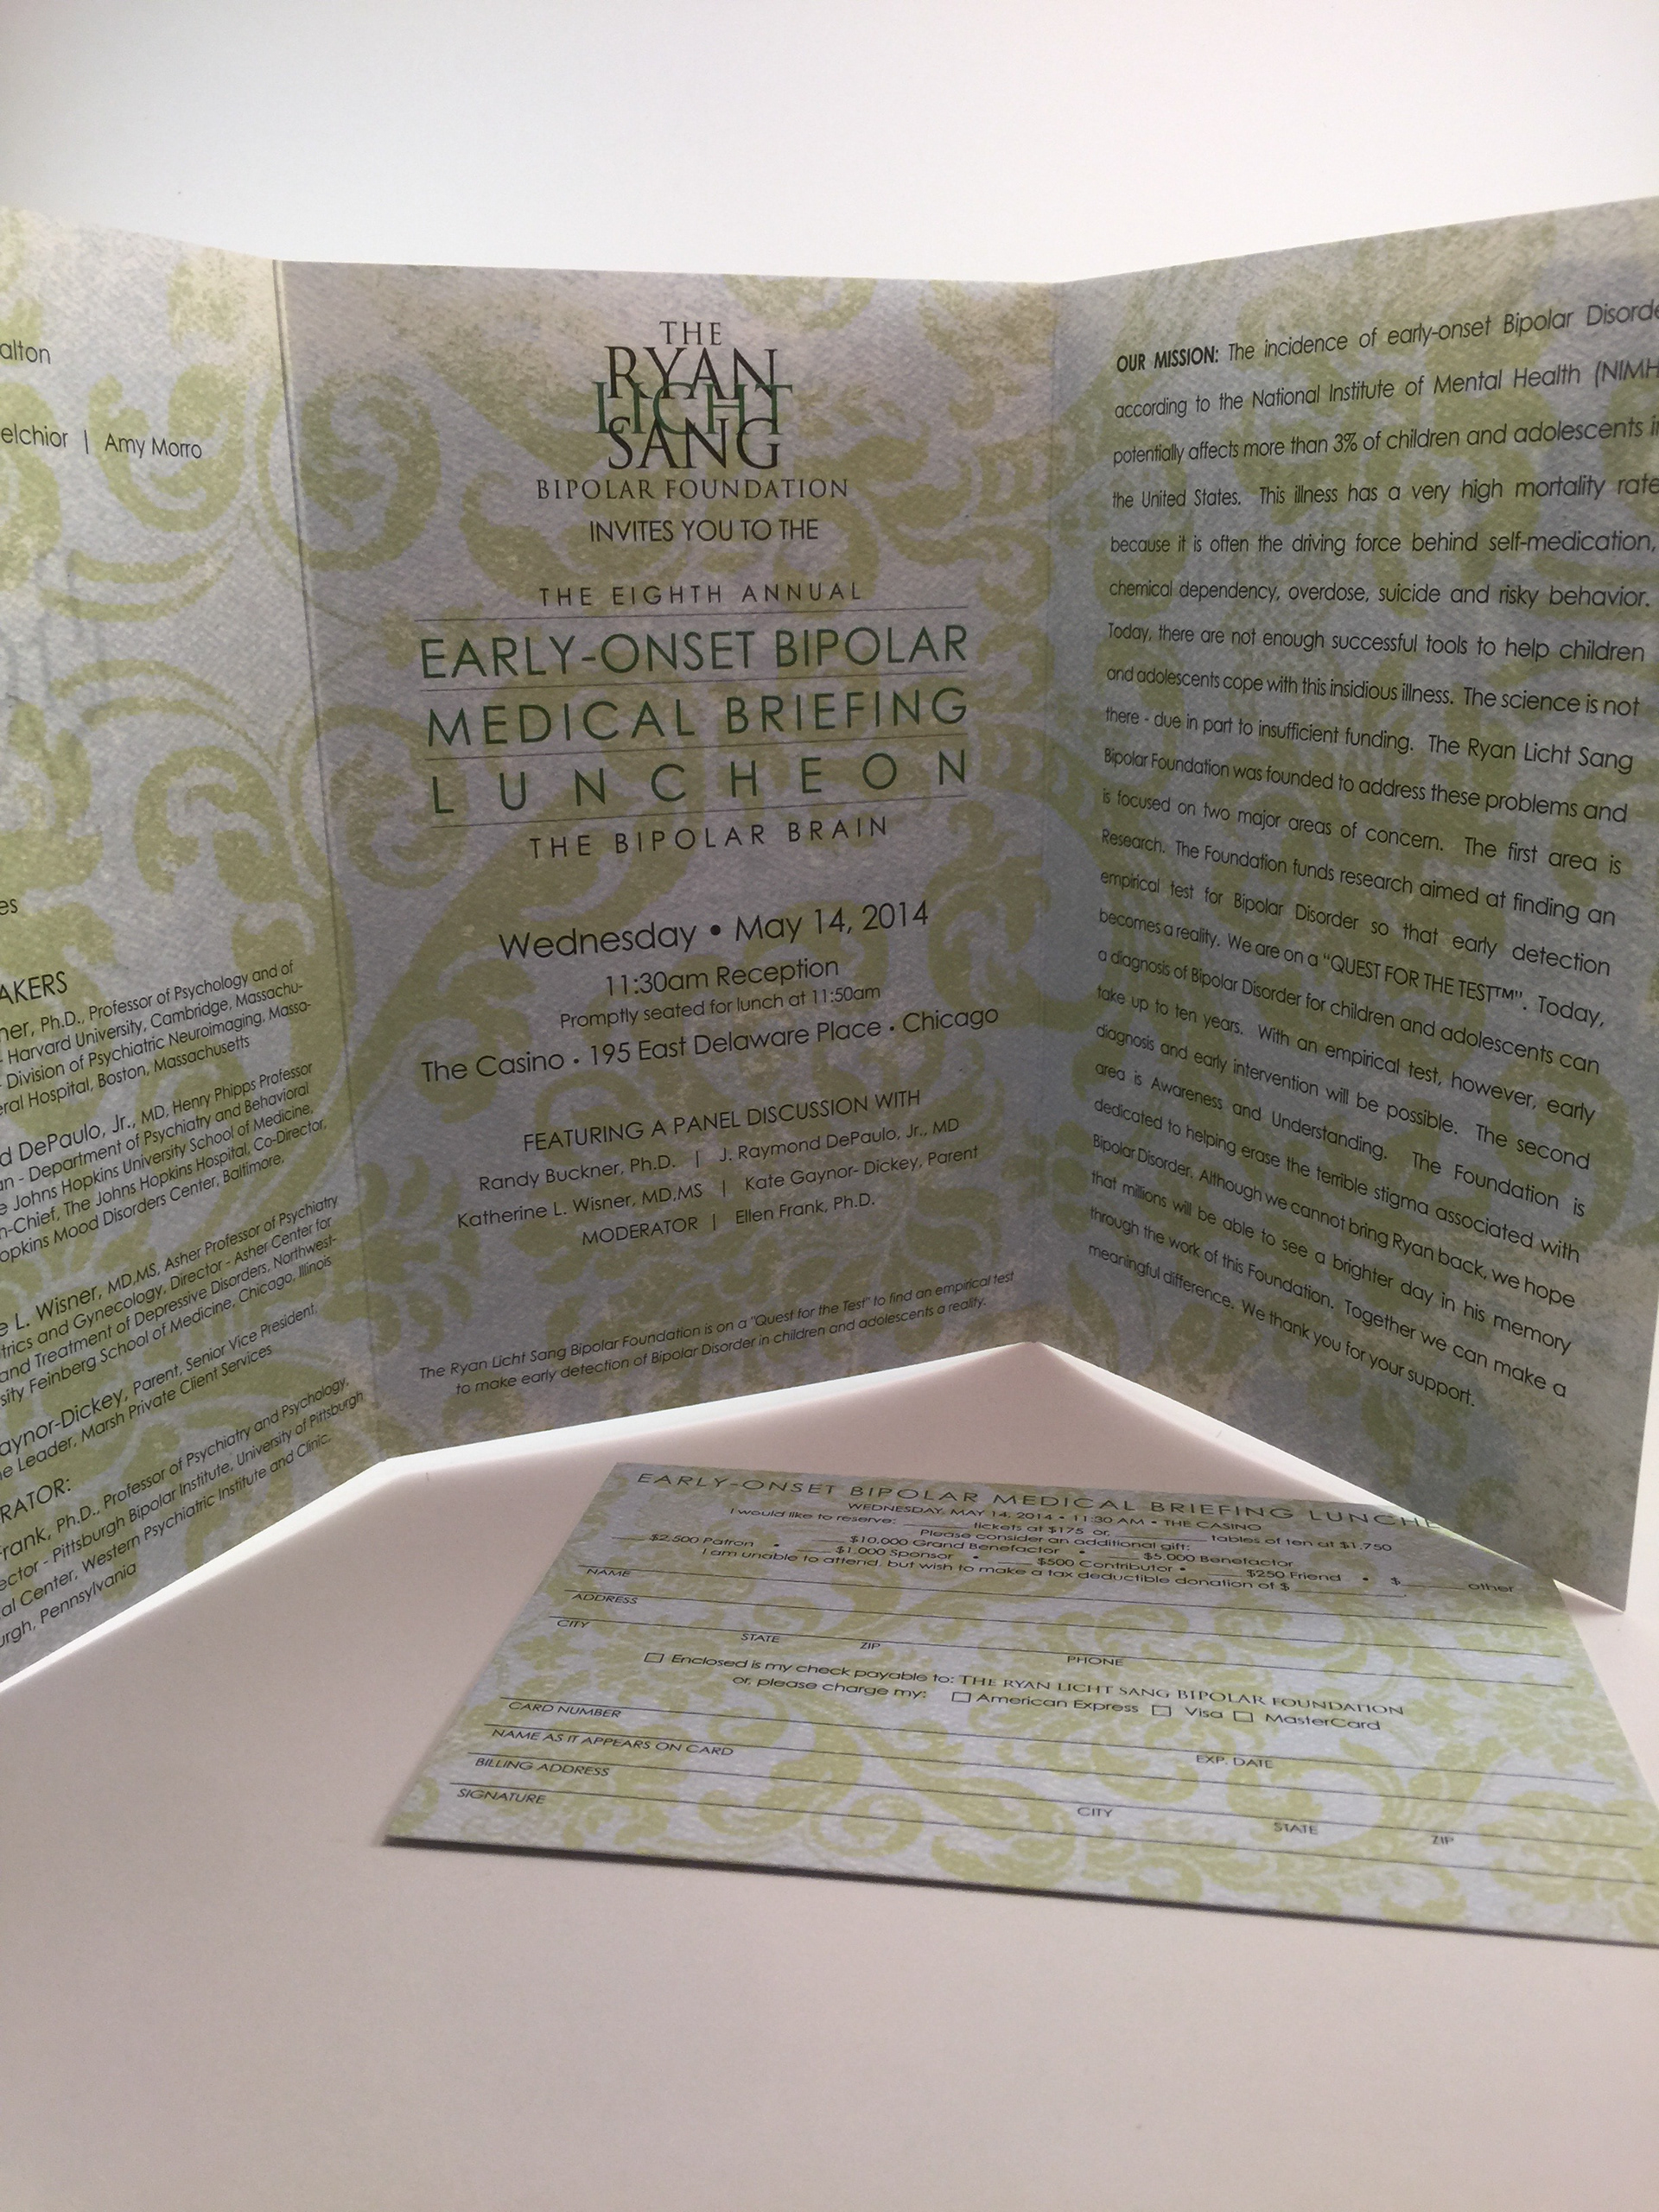 alton
elchior | Amy Morro
es
AKERS
ner, Ph.D., Professor of Psychology and of
- Harvard University, Cambridge, Massachu-
- Division of Psychiatric Neuroimaging, Massa-
eral Hospital, Boston, Massachusetts
d DePaulo, Jr., MD, Henry Phipps Professor
an - Department of Psychiatry and Behavioral
e Johns Hopkins University School of Medicine,
n-Chief, The Johns Hopkins Hospital, Co-Director,
opkins Mood Disorders Center, Baltimore,
e L. Wisner, MD,MS, Asher Professor of Psychiatry
trics and Gynecology, Director - Asher Center for
and Treatment of Depressive Disorders, Northwest-
sity Feinberg School of Medicine, Chicago, Illinois
aynor-Dickey, Parent, Senior Vice President,
e Leader, Marsh Private Client Services
RATOR:
Frank, Ph.D., Professor of Psychiatry and Psychology,
ector - Pittsburgh Bipolar Institute, University of Pittsburgh
al Center, Western Psychiatric Institute and Clinic,
urgh, Pennsylvania
THE
RYAN
LICHT
SANG
BIPOLAR FOUNDATION
INVITES YOU TO THE
THE EIGHTH ANNUAL
EARLY-ONSET BIPOLAR
MEDICAL BRIEFING
LUNCHEON
THE BIPOLAR BRAIN
Wednesday • May 14, 2014
11:30am Reception
Promptly seated for lunch at 11:50am
The Casino • 195 East Delaware Place • Chicago
FEATURING A PANEL DISCUSSION WITH
Randy Buckner, Ph.D. | J. Raymond DePaulo, Jr., MD
Katherine L. Wisner, MD,MS | Kate Gaynor- Dickey, Parent
MODERATOR | Ellen Frank, Ph.D.
The Ryan Licht Sang Bipolar Foundation is on a "Quest for the Test" to find an empirical test
to make early detection of Bipolar Disorder in children and adolescents a reality.
OUR MISSION: The incidence of early-onset Bipolar Disorde
according to the National Institute of Mental Health (NIMH
potentially affects more than 3% of children and adolescents i
the United States. This illness has a very high mortality rate
because it is often the driving force behind self-medication,
chemical dependency, overdose, suicide and risky behavior.
Today, there are not enough successful tools to help children
and adolescents cope with this insidious illness. The science is not
there - due in part to insufficient funding. The Ryan Licht Sang
Bipolar Foundation was founded to address these problems and
is focused on two major areas of concern. The first area is
Research. The Foundation funds research aimed at finding an
empirical test for Bipolar Disorder so that early detection
becomes a reality. We are on a "QUEST FOR THE TEST™". Today,
a diagnosis of Bipolar Disorder for children and adolescents can
take up to ten years. With an empirical test, however, early
diagnosis and early intervention will be possible. The second
area is Awareness and Understanding. The Foundation is
dedicated to helping erase the terrible stigma associated with
Bipolar Disorder. Although we cannot bring Ryan back, we hope
that millions will be able to see a brighter day in his memory
through the work of this Foundation. Together we can make a
meaningful difference. We thank you for your support.
EARLY-ONSET BIPOLAR MEDICAL BRIEFING LUNCHE
WEDNESDAY, MAY 14, 2014 • 11:30 AM • THE CASINO
I would like to reserve: ______ tickets at $175 or, ______ tables of ten at $1,750
Please consider an additional gift:
____ $10,000 Grand Benefactor • ____ $5,000 Benefactor
____ $2,500 Patron • ____ $1,000 Sponsor • ____ $500 Contributor • ____ $250 Friend • $ ______ other
I am unable to attend, but wish to make a tax deductible donation of $ ______.
NAME
ADDRESS
CITY STATE ZIP PHONE
☐ Enclosed is my check payable to: THE RYAN LICHT SANG BIPOLAR FOUNDATION
or, please charge my: ☐ American Express ☐ Visa ☐ MasterCard
CARD NUMBER EXP. DATE
NAME AS IT APPEARS ON CARD
BILLING ADDRESS CITY STATE ZIP
SIGNATURE